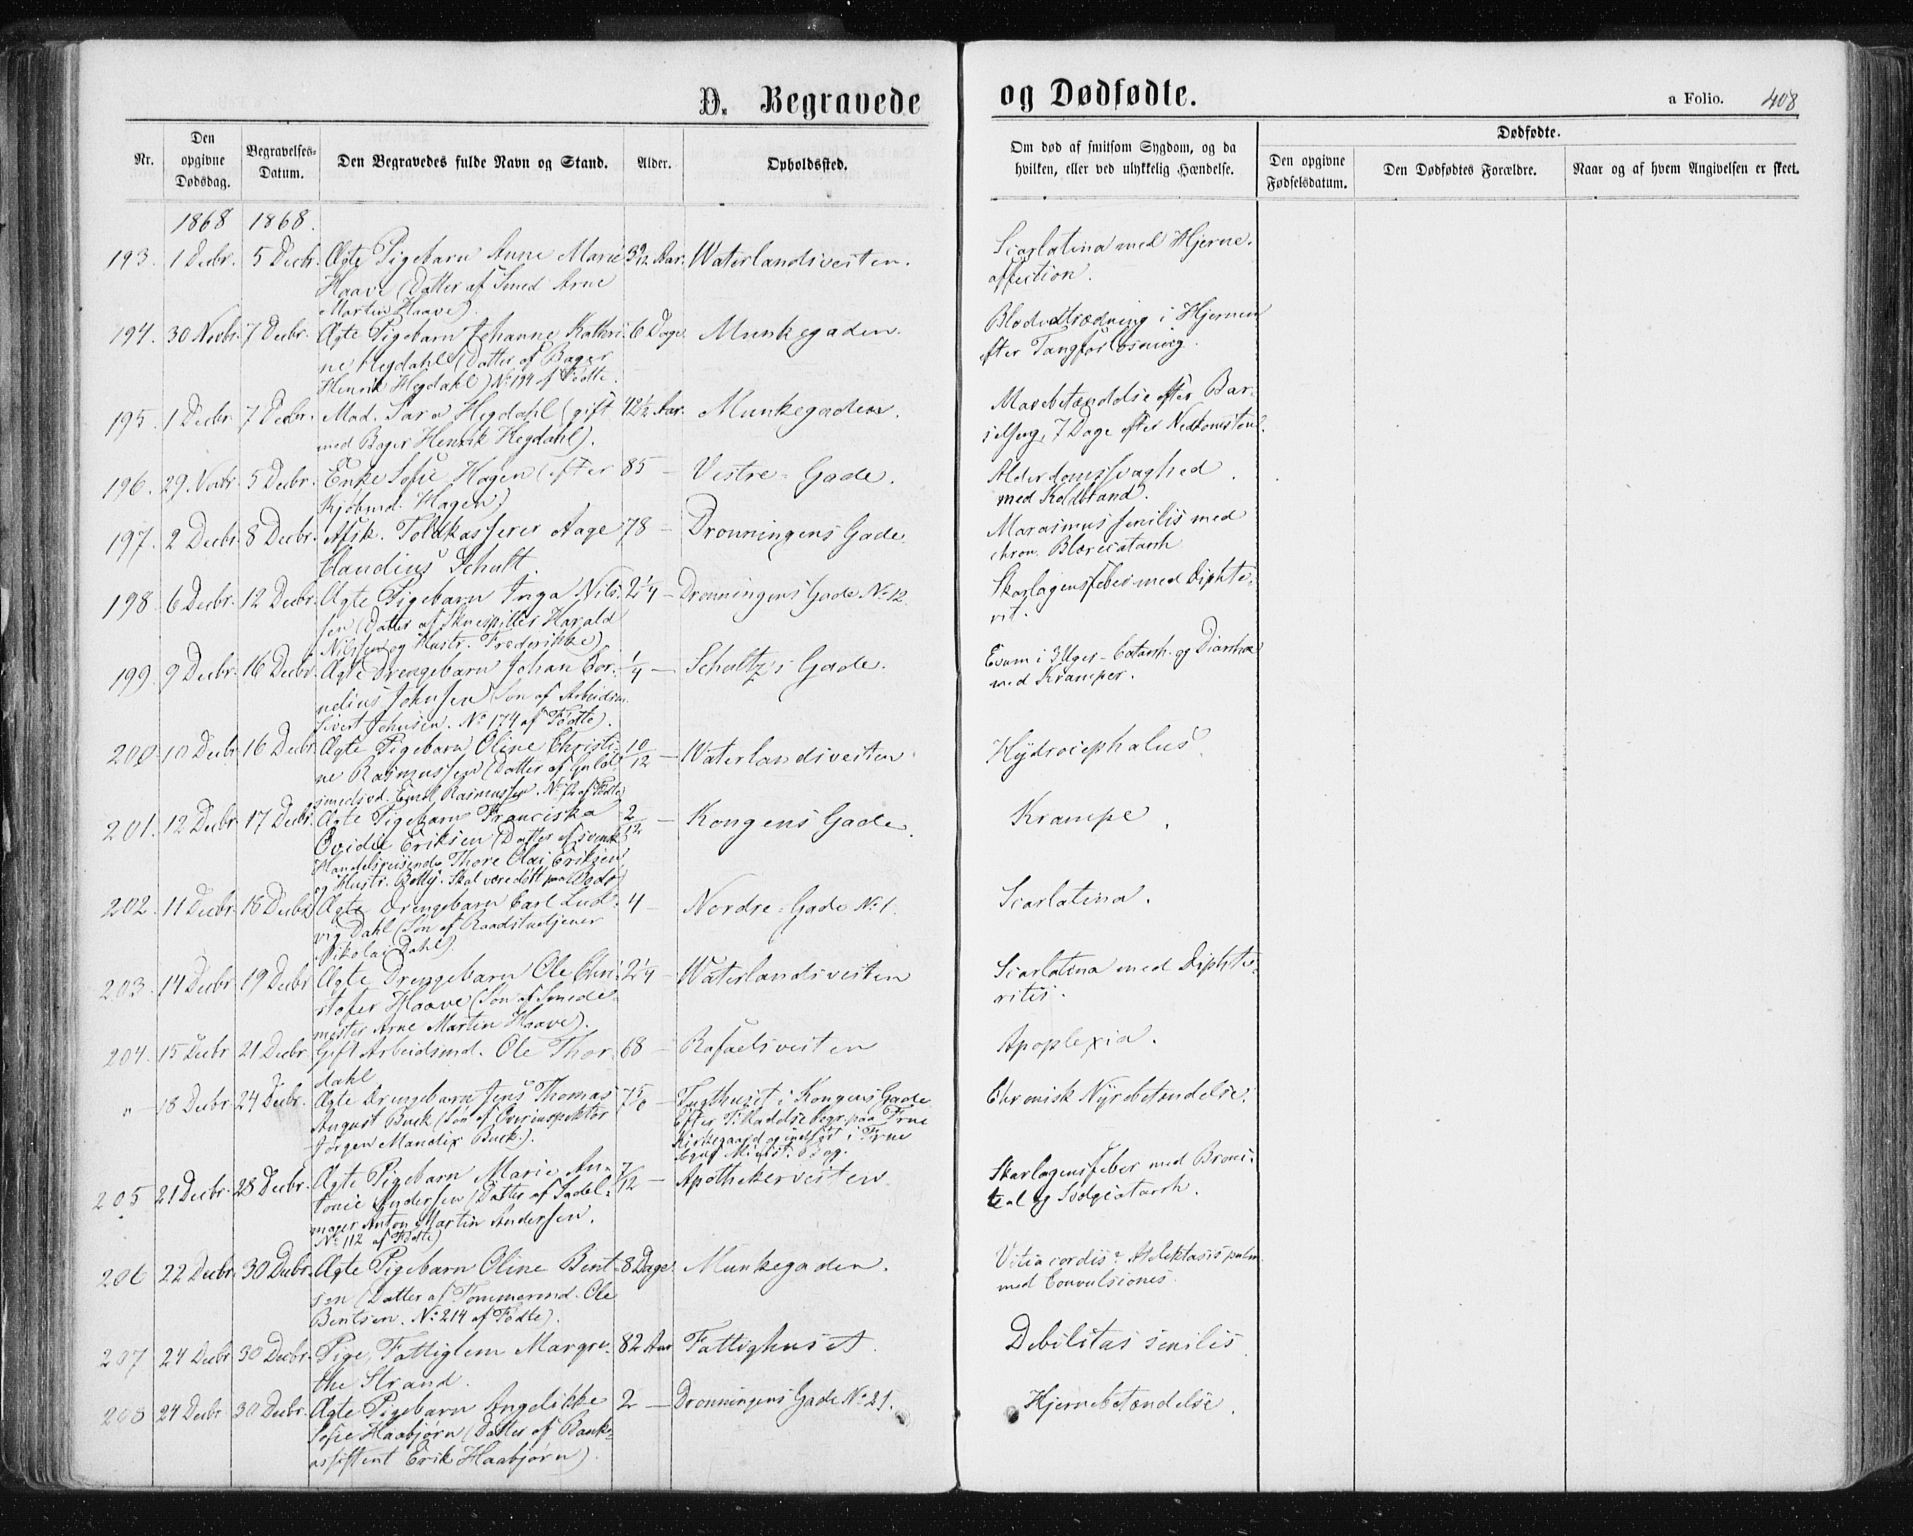 D. Begravede og Dødfødte.
a Folio. 408
Nr.
Den opgivne Dødsdag.
Begravelses-Datum.
Den Begravedes fulde Navn og Stand.
Alder.
Opholdssted.
Om død af smitsom Sygdom, og da hvilken, eller ved ulykkelig Hændelse.
Dødfødte.
Den opgivne Fødselsdatum.
Den Dødfødtes Forældre.
Naar og af hvem Angivelsen er skeet.
1868 1868.
193. 1 Decbr. 5 Decbr. Ægte Pigebarn Anne Marie 3 9/12 Aar. Waterlandsveiten. Scarlatina med Hjerne-
Haave (Datter af Smed Arne affection.
Martin Haave).
194. 30 Novbr. 7 Decbr. Ægte Pigebarn Johanne Kathri- 6 Dage. Munkegaden. Blodudtrædning i Hjernen
ne Hegdahl (Datter af Bager efter Tangforløsning.
Henrik Hegdahl) No 194 af Fødte.
195. 1 Decbr. 7 Decbr. Mad. Sara Hegdahl (gift 42½ Aar. Munkegaden. Mavebetændelse efter Bar-
med Bager Henrik Hegdahl). selseng, 7 Dage efter Nedkomsten.
196. 29 Novbr. 5 Decbr. Enke Sofie Hagen (efter 85 — Vestre-Gade. Alderdomssvaghed
Kjøbmd. Hagen) med Koldbrand.
197. 2 Decbr. 8 Decbr. Afsk. Toldkasserer Aage 78 — Dronningens Gade Marasmus senilis med
Claudius Schult. chron. Blærecatarrh
198. 6 Decbr. 12 Decbr. Ægte Pigebarn Inga Nils- 2¼ — Dronningens Gade No 12. Skarlagensfeber med Diphte-
sen (Datter af Skuespiller Harald rit.
Nilssen og Hustr. Frederikke)
199. 9 Decbr. 16 Decbr. Ægte Drengebarn Johan Cor- ¼ — Schultz's Gade. i 3 Uger – Catarrh. og Diarrhoe
nelius Johnsen (Søn af Arbeidsm. med Kramper.
Sivert Johnsen. No 174 af Fødte).
200. 10 Decbr. 16 Decbr. Ægte Pigebarn Oline Christi- 10/12 — Waterlandsveiten Hydrocephalus.
ne Rasmussen (Datter af Guld-
smedsvd. Emil Rasmussen. No 12 af Fødte)
201. 12 Decbr. 17 Decbr. Ægte Pigebarn Franciska 2/12 — Kongens Gade. Krampe.
Ovidie Eriksen (Datter af svensk
Handelsreisende Thore Olai Eriksen
og Hustr. Betty. Skal være døbt paa Bodø)
202. 11 Decbr. 18 Decbr. Ægte Drengebarn Carl Lud- 4 — Nordre-Gade No 1. Scarlatina.
vig Dahl (Søn af Raadstuetjener
Nikolai Dahl).
203. 14 Decbr. 19 Decbr. Ægte Drengebarn Ole Chri- 2¼ — Waterlandsveiten Scarlatina med Diphte-
stofer Haave (Søn af Smede- ritis.
mester Arne Martin Haave).
204. 15 Decbr. 21 Decbr. Gift Arbeidsmd. Ole Thor- 68 — Rafaelsveiten Apoplexia.
dahl
" — 18 Decbr. 24 Decbr. Ægte Drengebarn Jens Thomas 7 — Tugthuset i Kongens Gade. Chronisk Nyrebetændelse.
August Buck (Søn af Overinspektør Efter Tilladelse begr. paa Frue
Jørgen Mandix Buck). Kirkegaard og indført i Frue
Sogns Minist. Bog.
205. 21 Decbr. 28 Decbr. Ægte Pigebarn Marie An- 7/12 — Apothekerveiten. Skarlagensfeber med Bronc-
tonie Andersen (Datter af Sadel- eal og
mager Anton Martin Andersen.
No 112 af Fødte)
206 22 Decbr. 30 Decbr. Ægte Pigebarn Oline Bent- 8 Dage. Munkegaden. Vitia cordis? Atelektasis pulm.
sen (Datter af Tømmermd. Ole med Convulsiones.
Bentsen. No 214 af Fødte).
207 24 Decbr. 30 Decbr. Pige, Fattiglem Margre- 82 Aar Fattighuset. Debilitas senilis.
the Strand.
208 24 Decbr. 30 Decbr. Ægte Pigebarn Angelikke 2 — Dronningens Gade No 21. Hjernebetændelse.
Sofie Haabjørn (Datter af Bank-
assistent Erik Haabjørn).